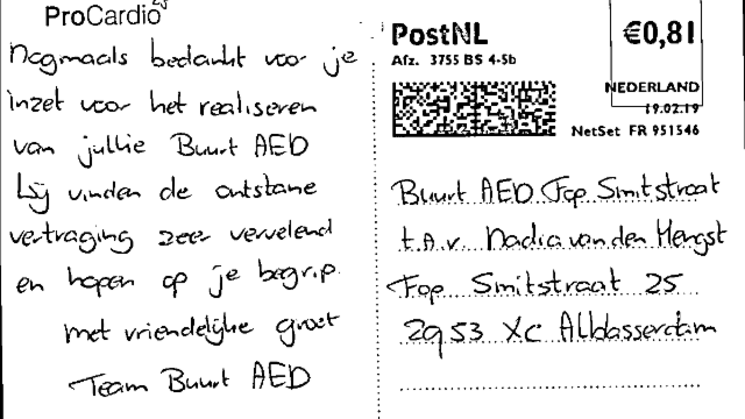 ProCardio
Nogmaals bedankt voor je
inzet voor het realiseren
van jullie Buurt AED
Wij vinden de ontstane
vertraging zeer vervelend
en hopen op je begrip.
met vriendelijke groet
Team Buurt AED
PostNL
Afz. 3755 BS 4-5b
€0,81
NEDERLAND
19.02.19
NetSet FR 951546
Buurt AED Fop Smitstraat
t.a.v. Nadia van den Hengst
Fop Smitstraat 25
2953 XC Alblasserdam